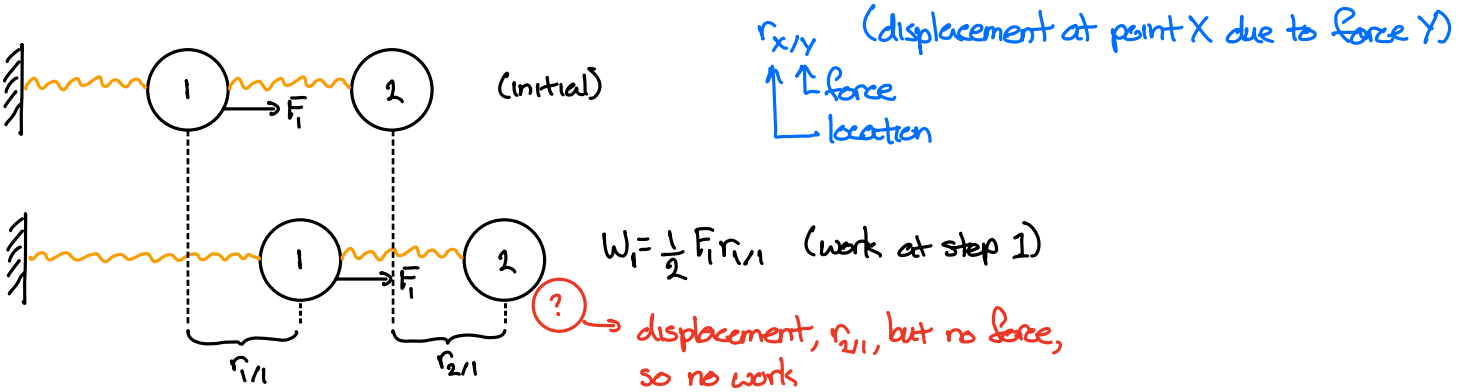 r x/y (displacement at point X due to force Y)
1 2 (initial)
F₁
force
location
1 2
F₁
W₁ = 1/2 F₁ r₁/₁ (work at step 1)
?
displacement, r₂/₁, but no force,
so no work
r₁/₁ r₂/₁